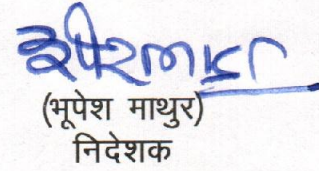 (भूपेश माथुर)
निदेशक